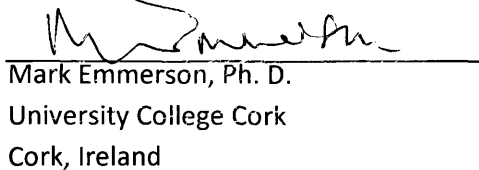 Mark Emmerson, Ph. D.
University College Cork
Cork, Ireland